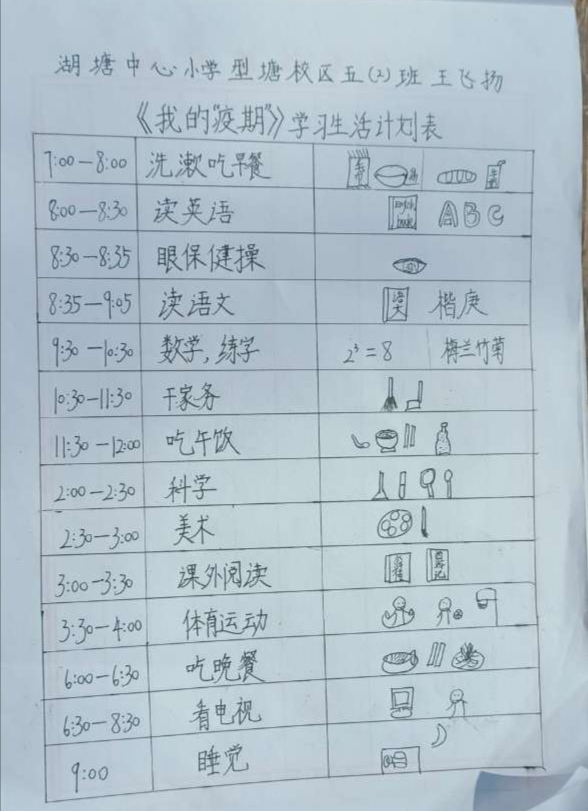 湖塘中心小学型塘校区五(2)班王飞扬
《我的"疫期"》学习生活计划表
7:00—8:00 洗漱吃早餐
8:00—8:30 读英语 A B C
8:30—8:35 眼保健操
8:35—9:05 读语文 语文 楷庚
9:30—10:30 数学,练字 2³=8 梅兰竹菊
10:30—11:30 干家务
11:30—12:00 吃午饭
2:00—2:30 科学
2:30—3:00 美术
3:00—3:30 课外阅读
3:30—4:00 体育运动
6:00—6:30 吃晚餐
6:30—8:30 看电视
9:00 睡觉